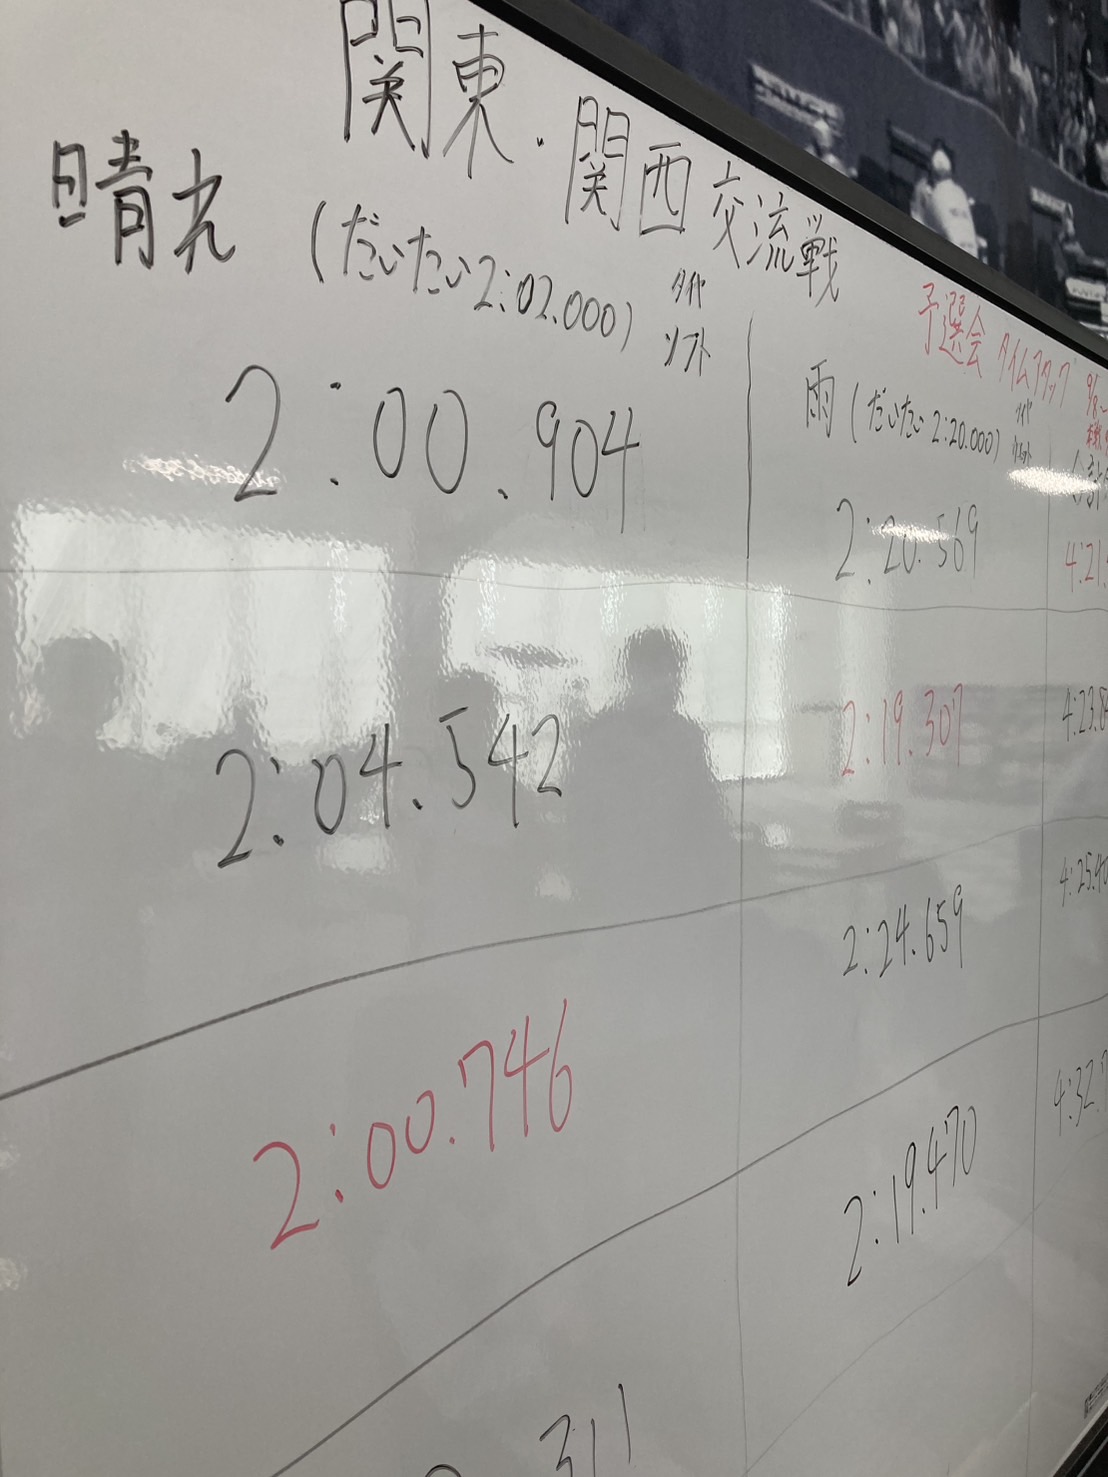 関東・関西交流戦
予選会 タイムアタック
晴れ (だいたい2:02.000) タイヤ ソフト
雨 (だいたい 2:20.000) タイヤ
2:00.904
2:20.569
4:21.
2:04.542
2:19.307
4:23.8
2:24.659
4:25.40
2:00.746
2:19.470
4:32.
311